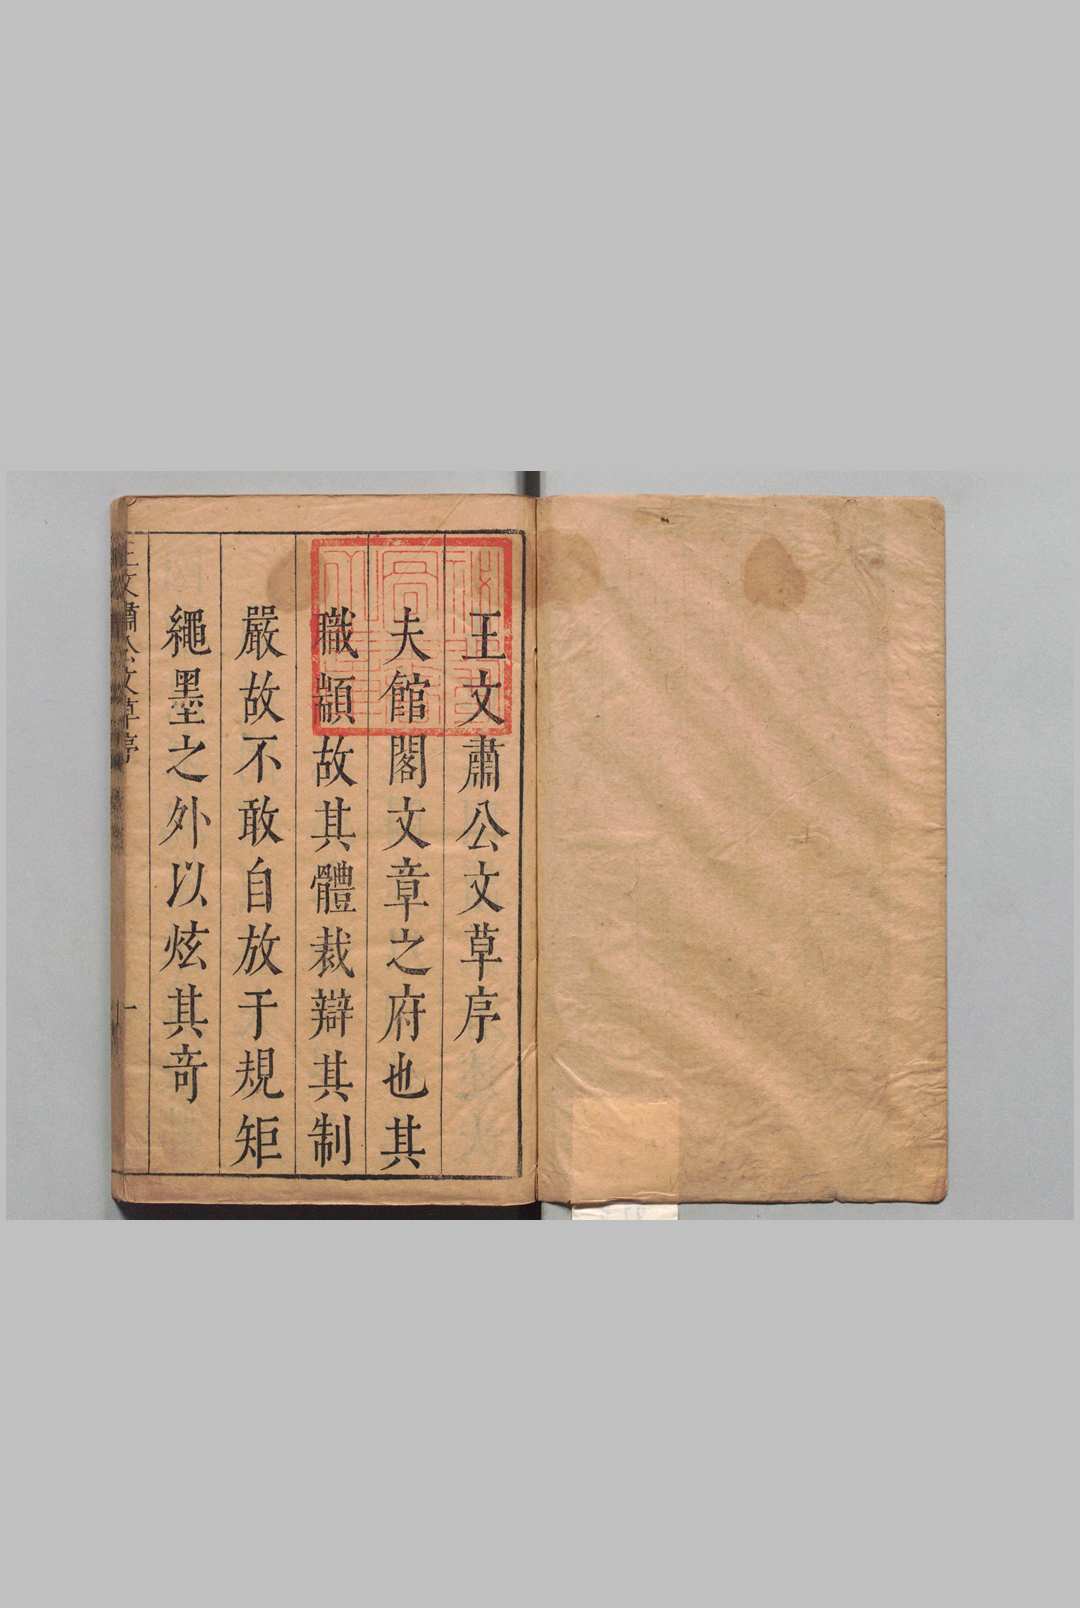 王文肅公文草序
夫館閣文章之府也其
職顓故其體裁辯其制
嚴故不敢自放于規矩
繩墨之外以炫其奇
王文肅公文草序
一